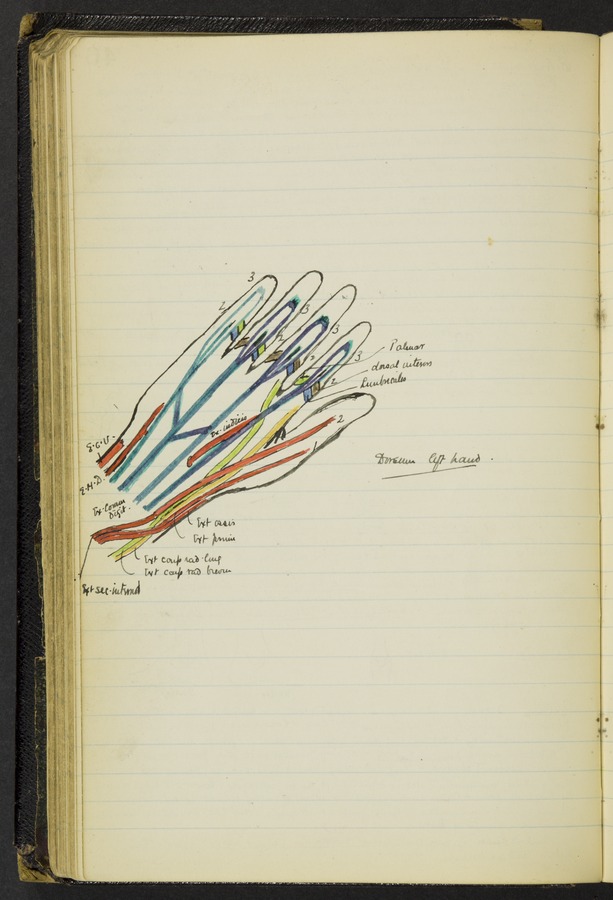 3
2
3
3
2
3
2
2
1
Palmar
dorsal inteross
Lumbricales
Ex. indicis
E.C.U.
E.M.D.
Ex. Comm
Digit.
Dorsum left hand.
Ext ossis
Ext primi
Ext carp rad long
Ext carp rad brevis
Ext sec. internod